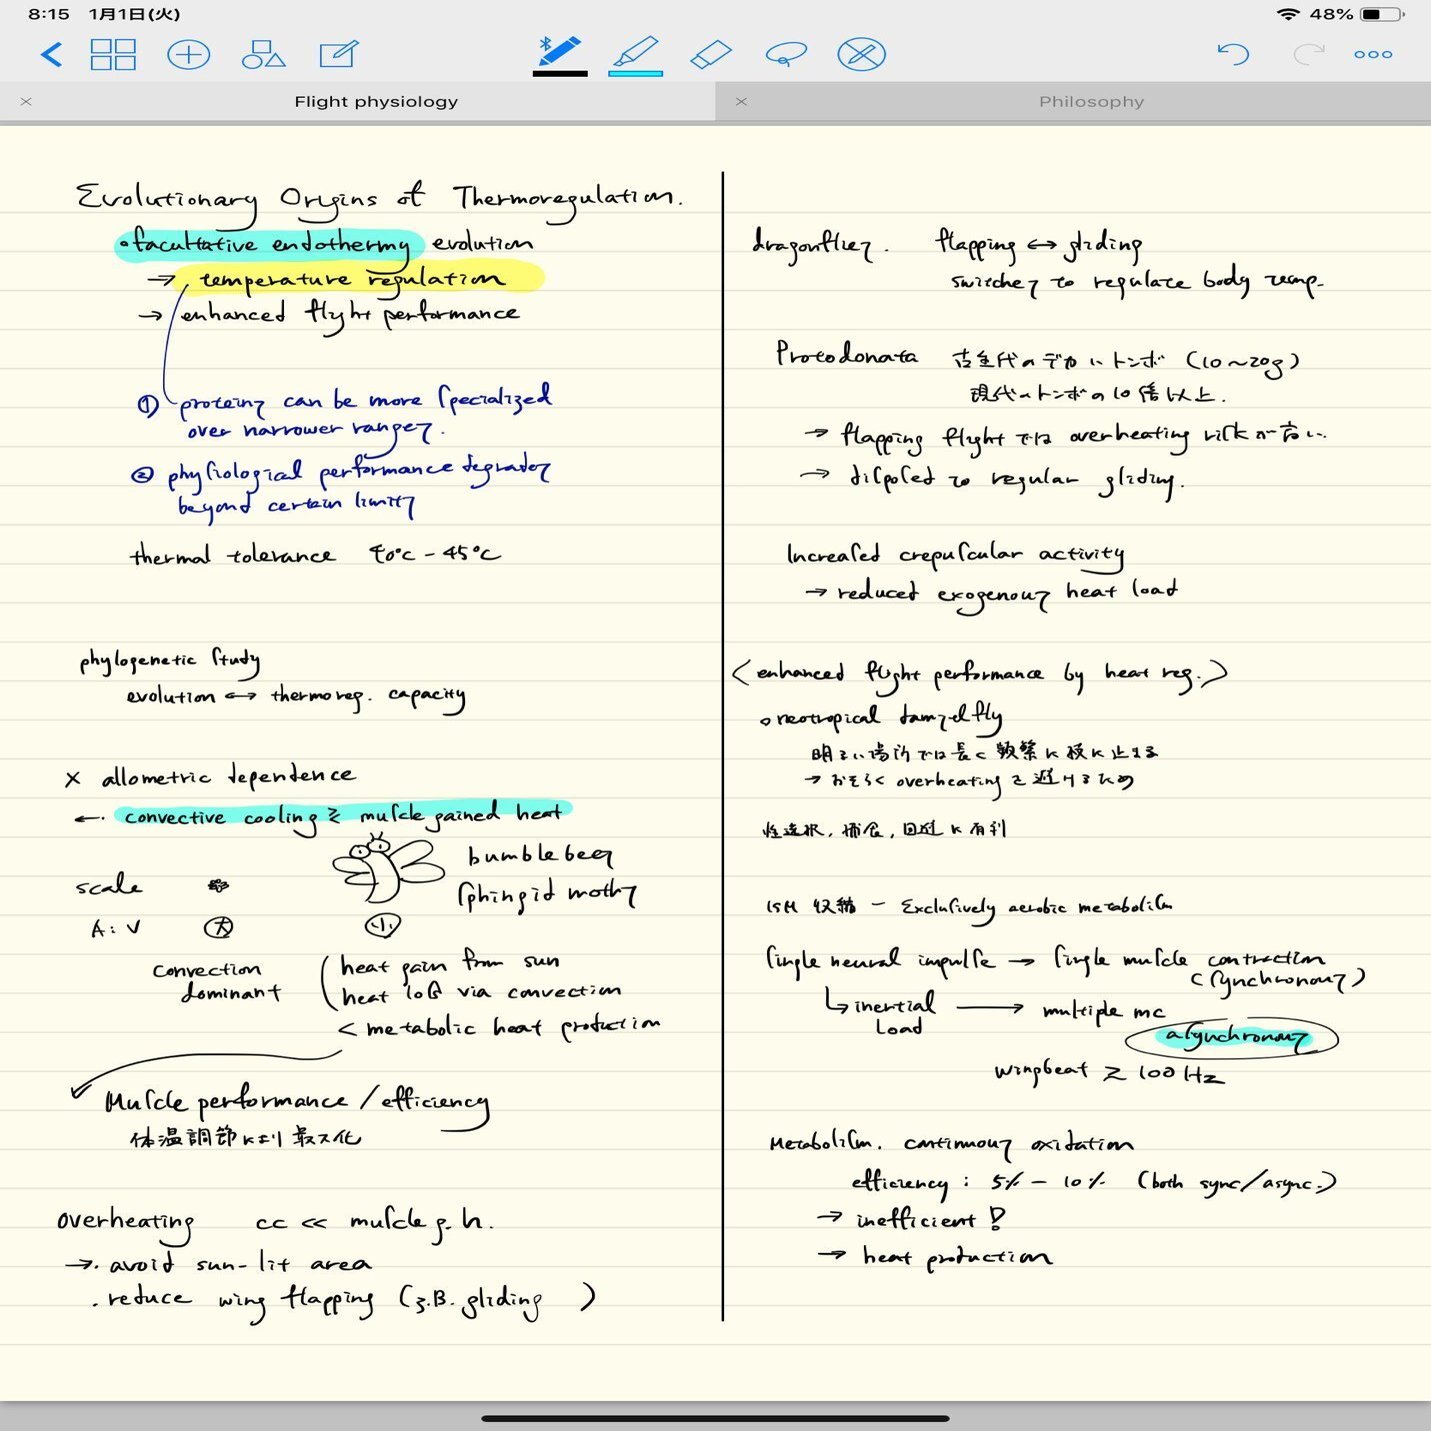 8:15 1月1日(火)
48%
Flight physiology
Philosophy
Evolutionary Origins of Thermoregulation.
•facultative endothermy evolution
→ temperature regulation
→ enhanced flight performance
① proteins can be more specialized
over narrower ranges.
② physiological performance degrades
beyond certain limits
thermal tolerance 40°C - 45°C
phylogenetic study
evolution ↔ thermoreg. capacity
× allometric dependence
←. convective cooling ≥ muscle gained heat
bumblebees
sphingid moths
scale
A:V 大 小
convection
dominant
heat gain from sun
heat loss via convection
< metabolic heat production
Muscle performance / efficiency
体温調節により最大化
overheating cc << muscle g. h.
→ . avoid sun-lit area
. reduce wing flapping (z.B. gliding )
dragonflies. flapping ↔ gliding
switches to regulate body temp.
Protodonata 古生代のデカいトンボ (10~20g)
現代のトンボの10倍以上.
→ flapping flightでは overheating riskが高い.
→ disposed to regular gliding.
Increased crepuscular activity
→ reduced exogenous heat load
<enhanced flight performance by heat reg.>
○ neotropical damselfly
明るい場所では長く頻繁に枝に止まる
→ おそらく overheatingを避けるため
性選択, 捕食, 回避に有利
ISM 収縮 - Exclusively aerobic metabolism
single neural impulse → single muscle contraction
(synchronous)
↳ inertial → multiple mc
load
asynchronous
wingbeat ≥ 100 Hz
Metabolism. continuous oxidation
efficiency: 5% - 10% (both sync/async.)
→ inefficient!
→ heat production